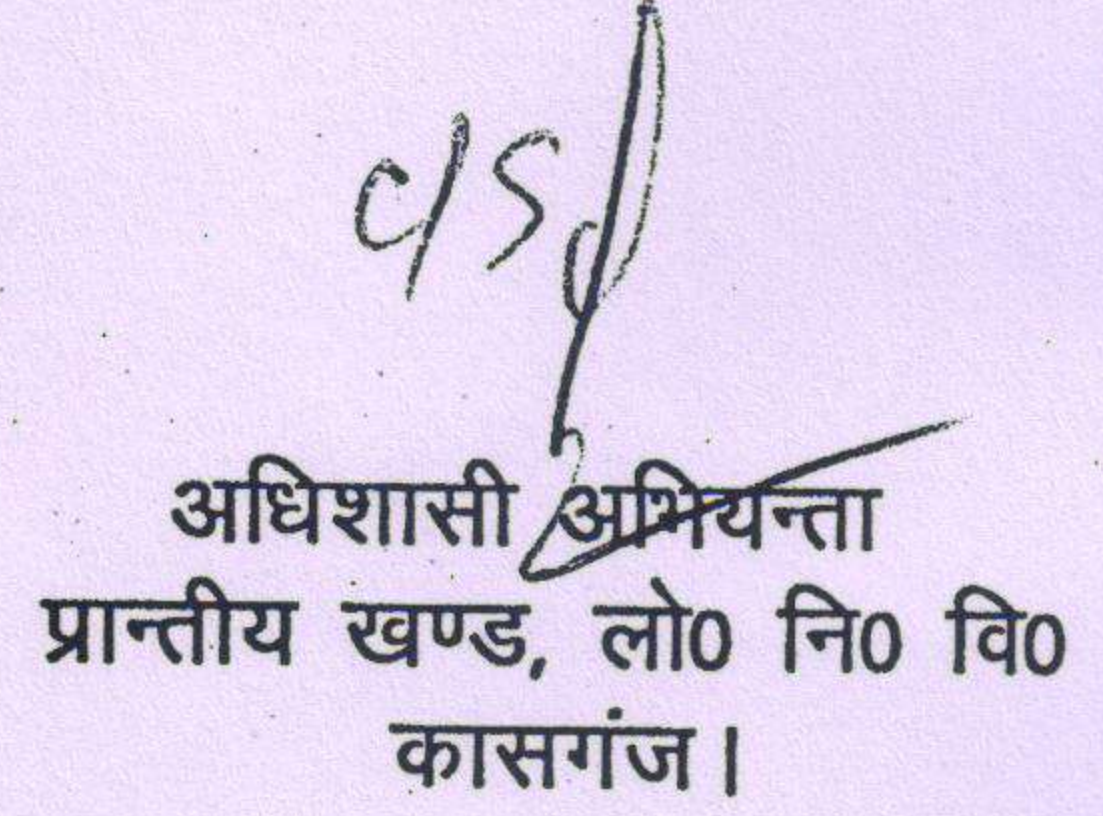 अधिशासी अभियन्ता
प्रान्तीय खण्ड, लो0 नि0 वि0
कासगंज।